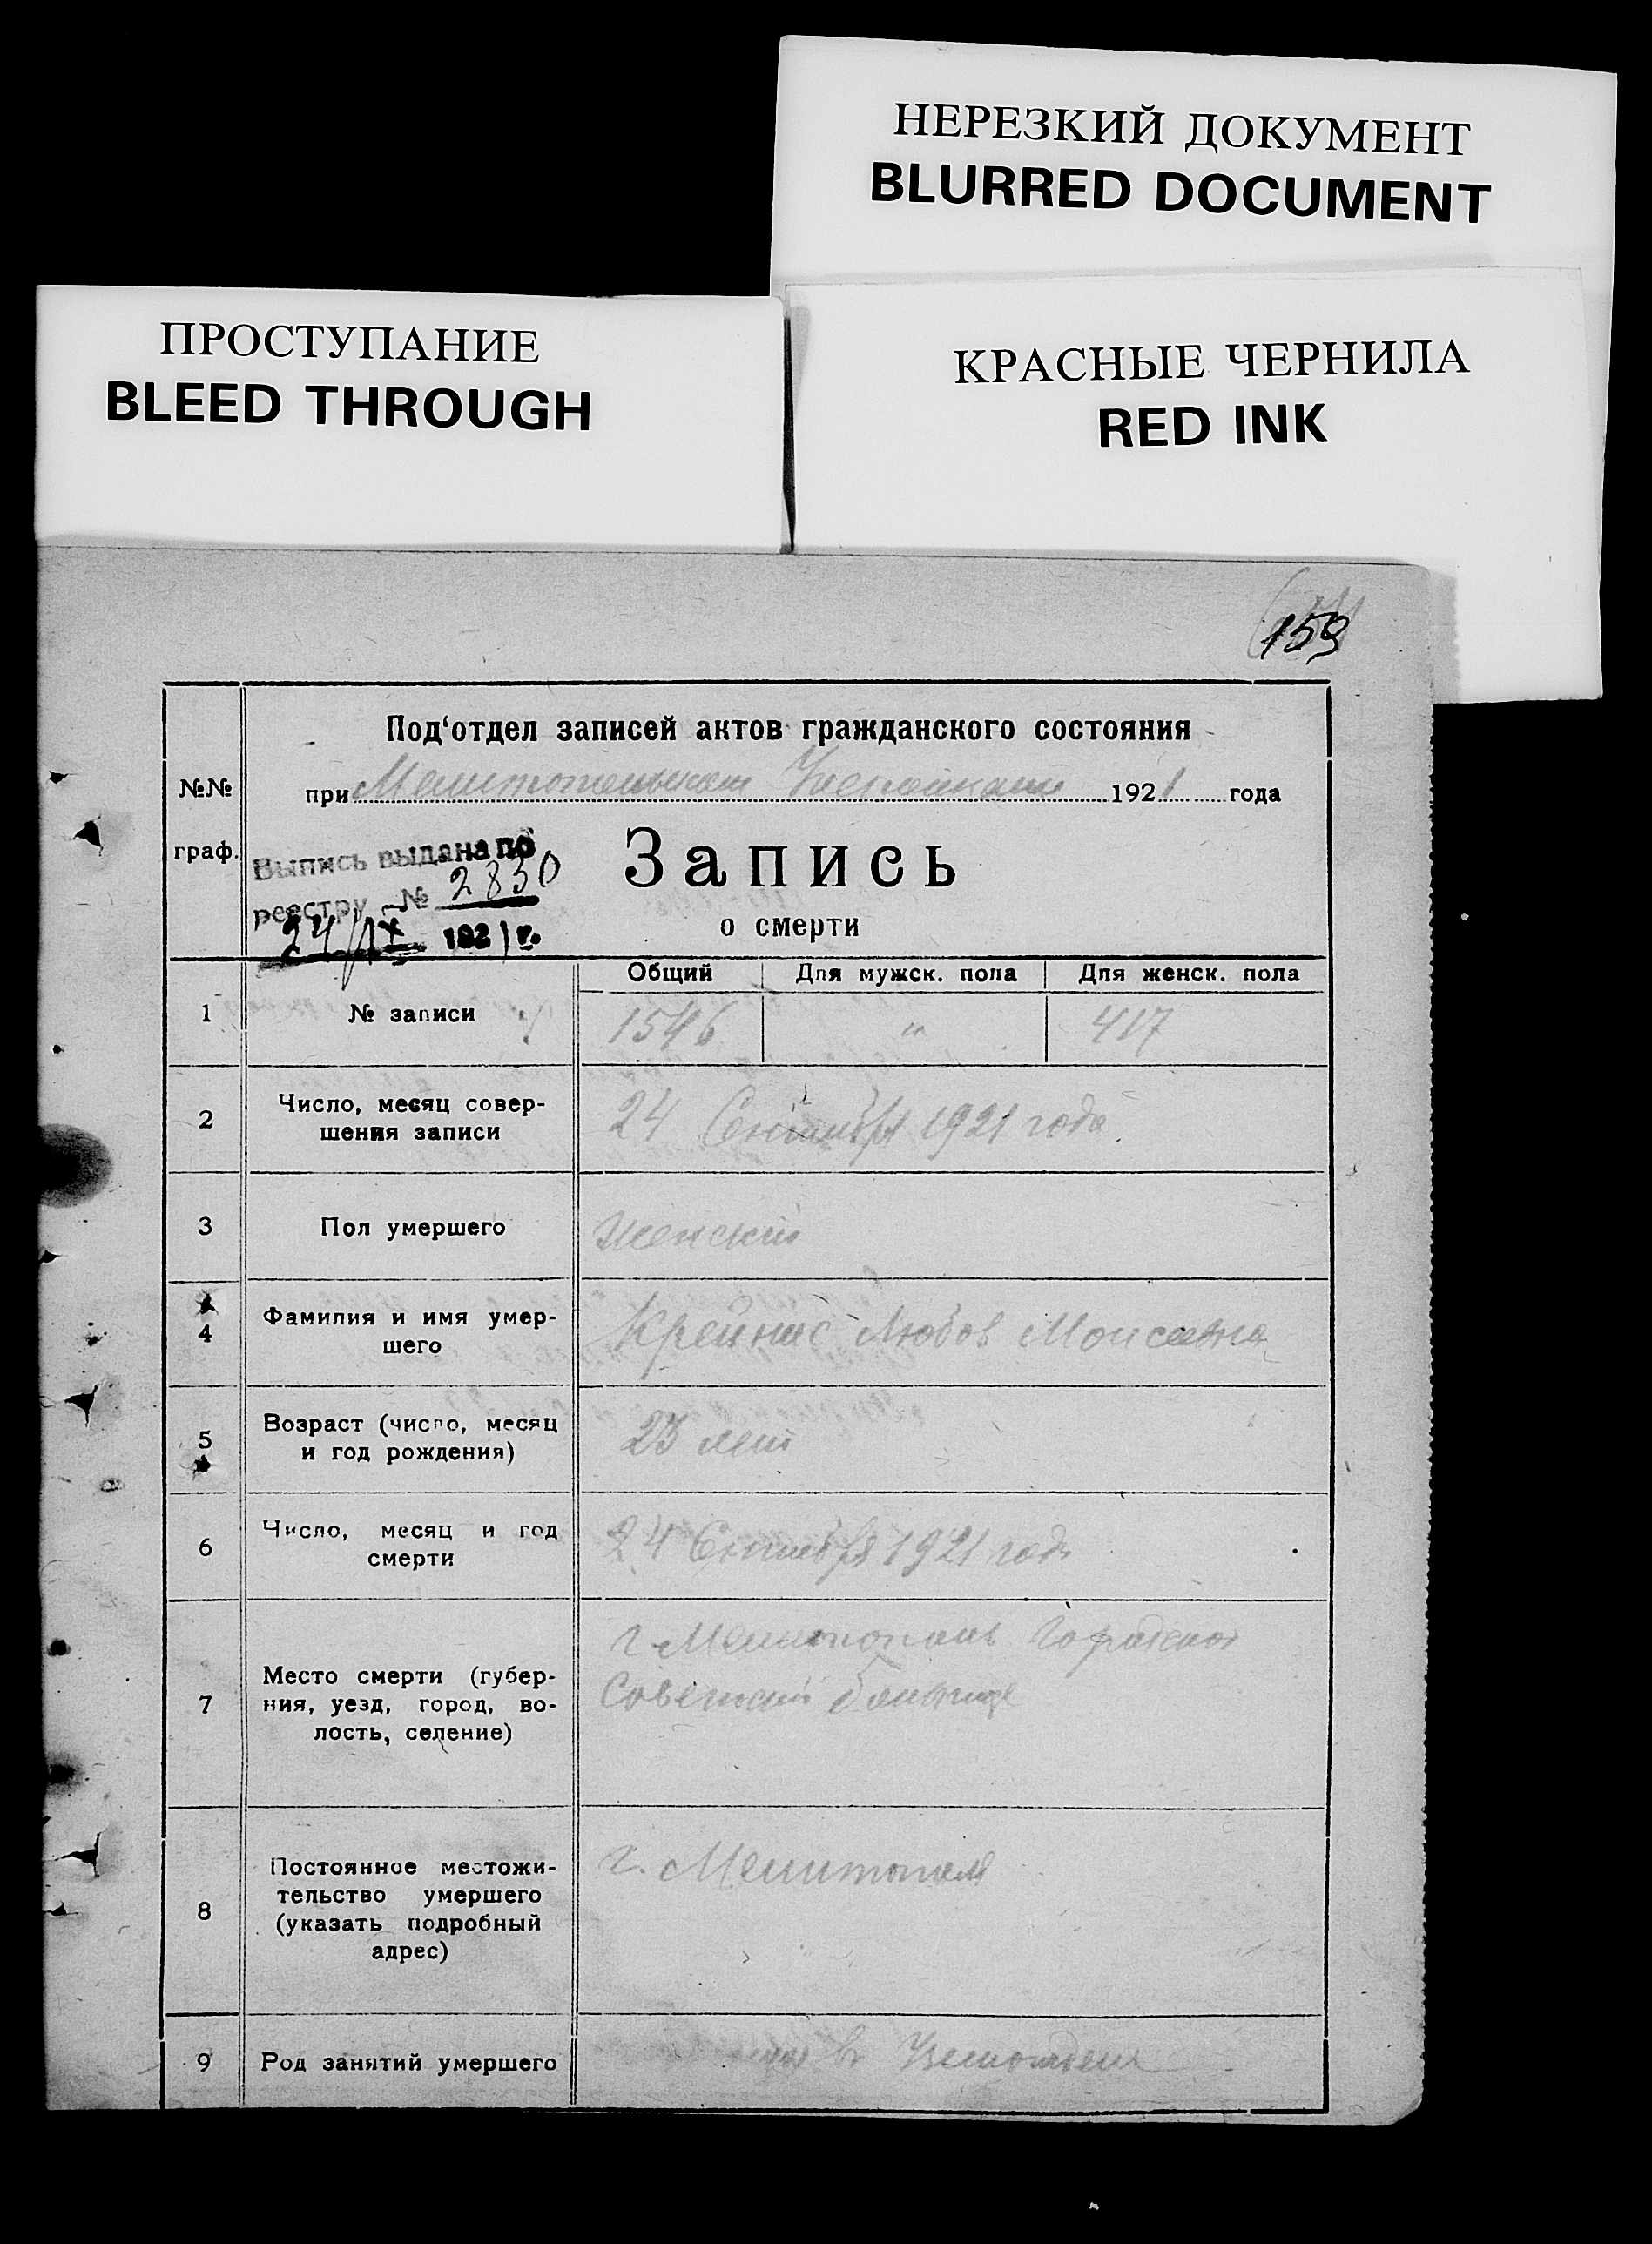 НЕРЕЗКИЙ ДОКУМЕНТ
BLURRED DOCUMENT
ПРОСТУПАНИЕ
BLEED THROUGH
КРАСНЫЕ ЧЕРНИЛА
RED INK
159
Под‘отдел записей актов гражданского состояния
№№ граф.
при Мелитопольском 1921 года
Выпись выдана по
реестру № 2830
24/IX 1921 г.
Запись
о смерти
Общий Для мужск. пола Для женск. пола
1 № записи 1546 " 417
2 Число, месяц совер-
шения записи
24 Сентября 1921 года
3 Пол умершего женский
4 Фамилия и имя умер-
шего
Крейнис Любов Моисеевна
5 Возраст (число, месяц
и год рождения)
23 лет
6 Число, месяц и год
смерти
24 Сентября 1921 года
7 Место смерти (губер-
ния, уезд, город, во-
лость, селение)
г Мелитополь Городской
Советской больнице
8 Постоянное местожи-
тельство умершего
(указать подробный
адрес)
г. Мелитополя
9 Род занятий умершего в